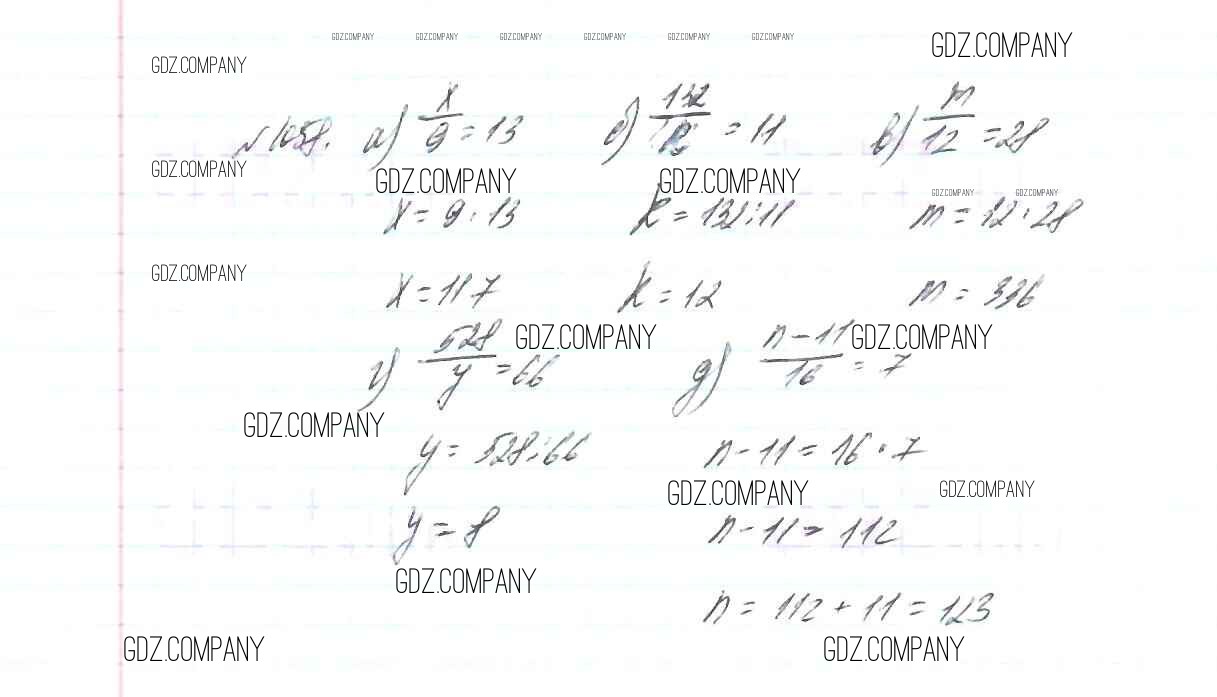 GDZ.COMPANY GDZ.COMPANY GDZ.COMPANY GDZ.COMPANY GDZ.COMPANY GDZ.COMPANY
GDZ.COMPANY
GDZ.COMPANY
№1058. а) x/9 = 13 б) 132/k = 11 в) m/12 = 28
GDZ.COMPANY
GDZ.COMPANY GDZ.COMPANY
GDZ.COMPANY GDZ.COMPANY
x = 9 · 13 k = 132 : 11 m = 12 · 28
GDZ.COMPANY
x = 117 k = 12 m = 336
GDZ.COMPANY GDZ.COMPANY
г) 528/y = 66 д) n - 11/16 = 7
GDZ.COMPANY
y = 528 : 66 n - 11 = 16 · 7
GDZ.COMPANY GDZ.COMPANY
y = 8 n - 11 = 112
GDZ.COMPANY
n = 112 + 11 = 123
GDZ.COMPANY GDZ.COMPANY